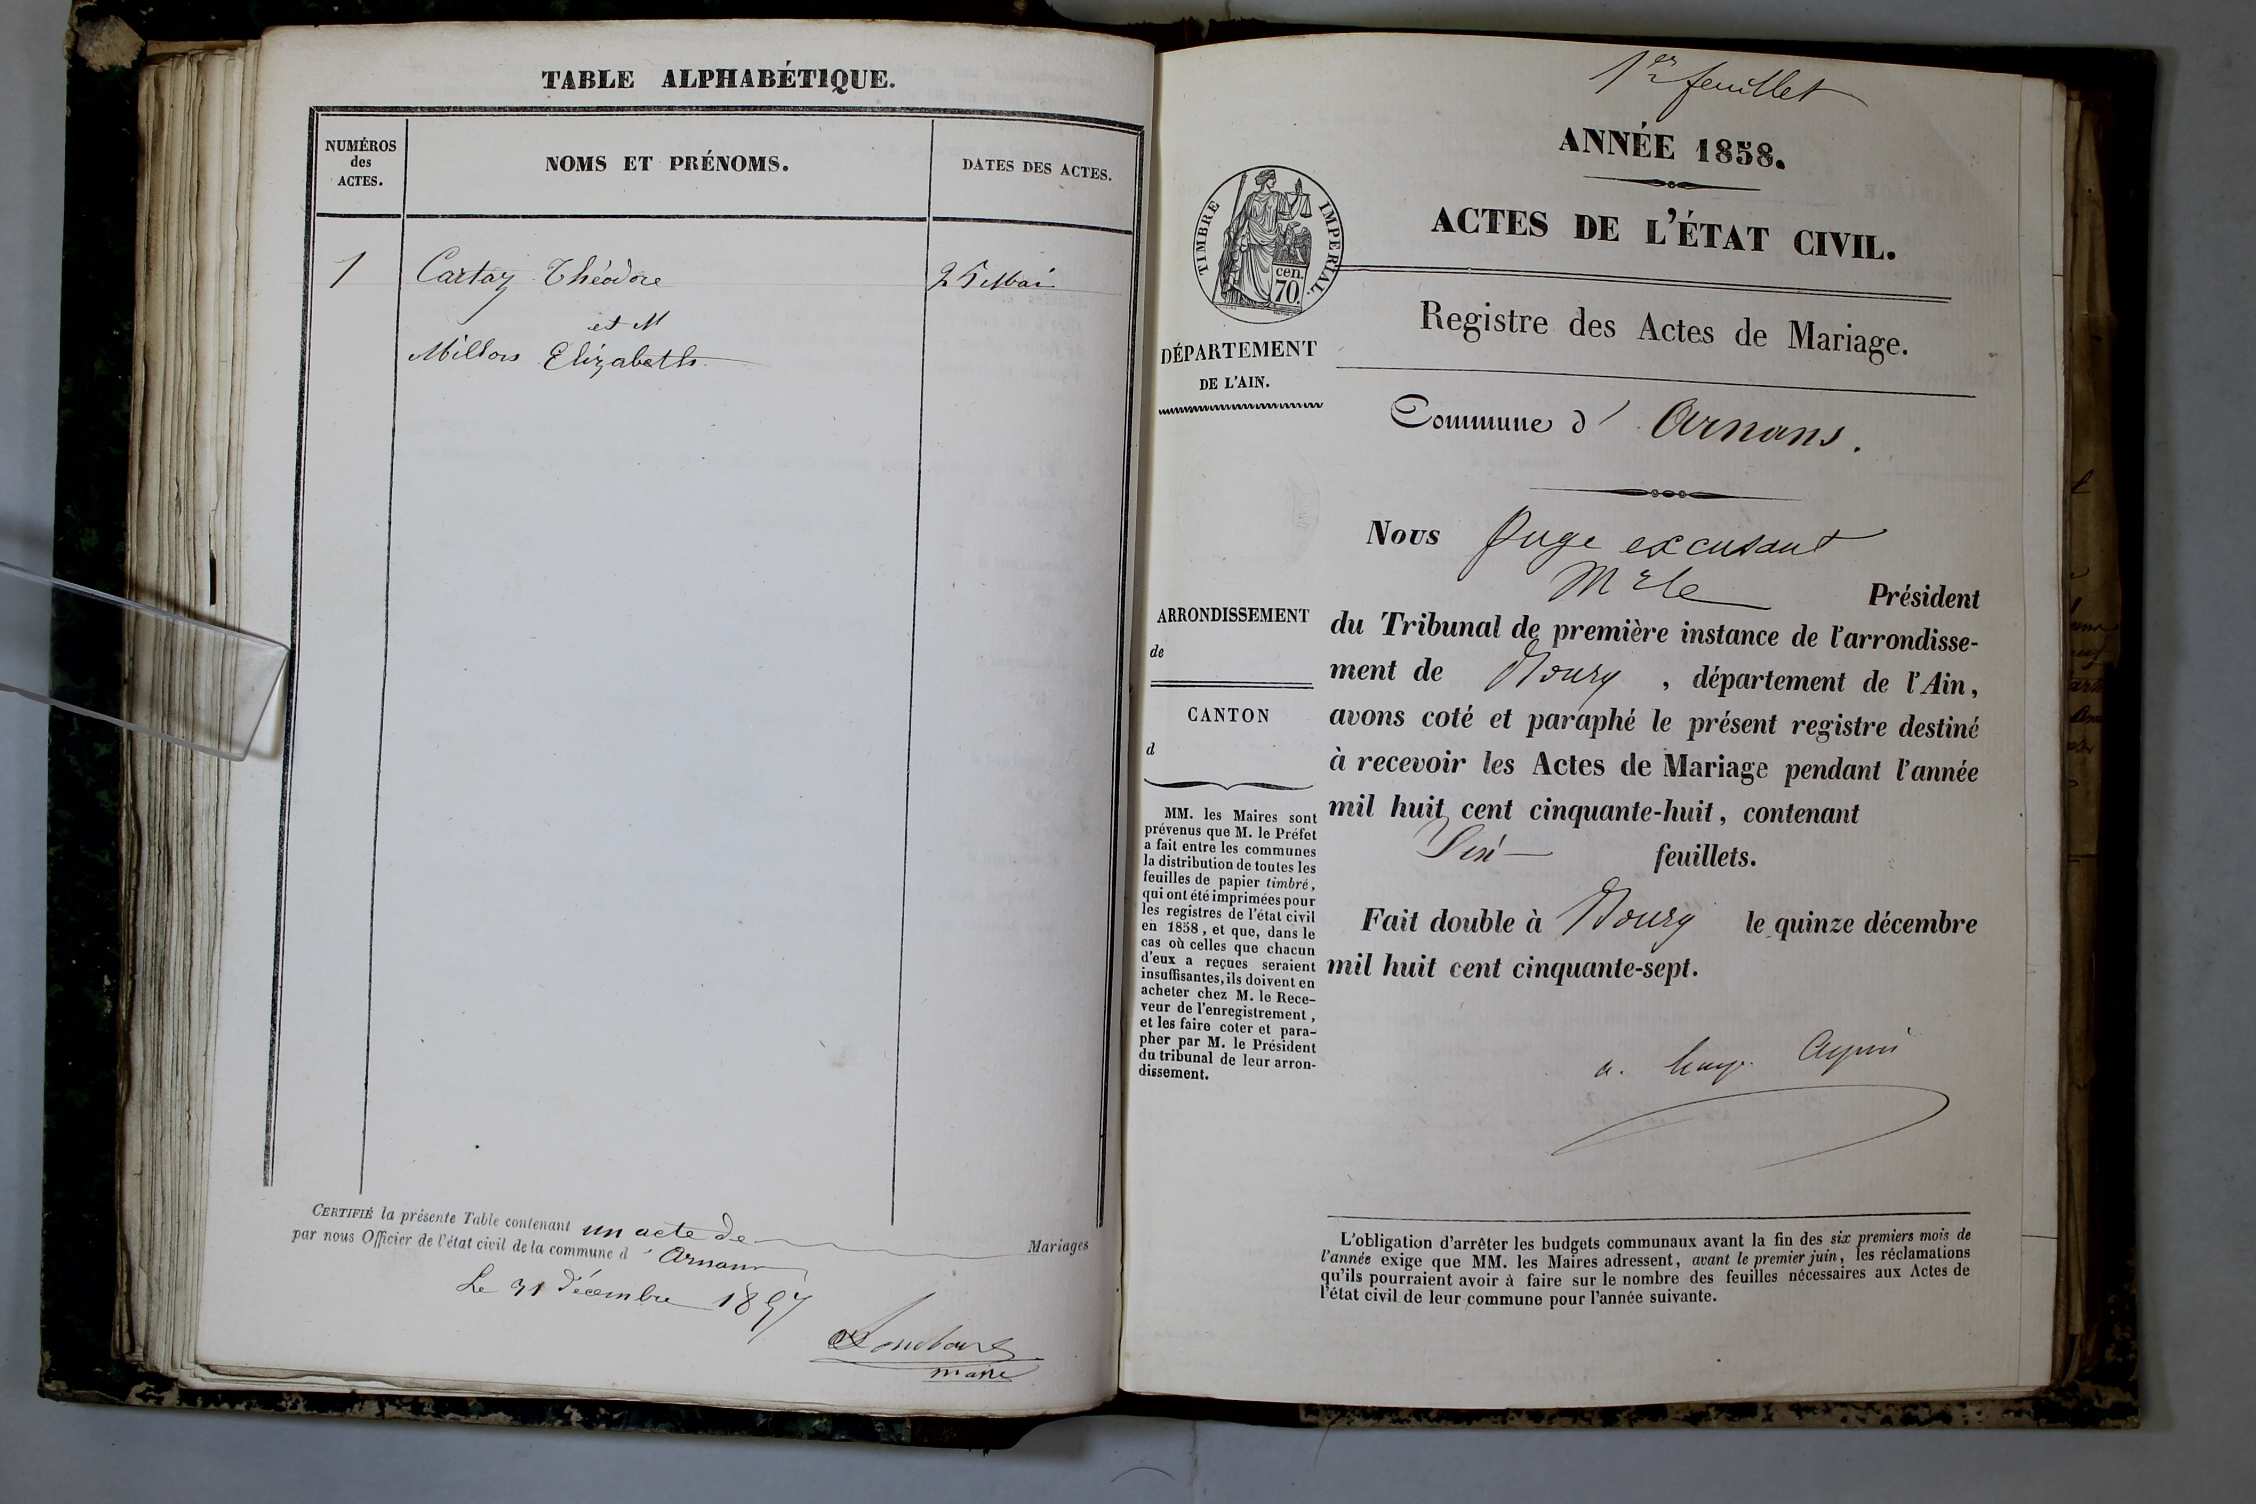 TABLE ALPHABÉTIQUE.
NUMÉROS
des
ACTES.
NOMS ET PRÉNOMS.
DATES DES ACTES.
1
Cartay Théodore
25 Mai
et M
Elizabeth
CERTIFIÉ la présente Table contenant un acte de Mariages
par nous Officier de l'état civil de la commune d' Arnans
Le 31 Décembre 1857
maire
1er feuillet
ANNÉE 1858.
ACTES DE L'ÉTAT CIVIL.
TIMBRE IMPERIAL.
cen.
70.
Registre des Actes de Mariage.
DÉPARTEMENT
DE L'AIN.
Commune d' Arnans.
Nous Juge excusant
Mr le Président
du Tribunal de première instance de l'arrondisse-
ment de Bourg, département de l'Ain,
avons coté et paraphé le présent registre destiné
à recevoir les Actes de Mariage pendant l'année
mil huit cent cinquante-huit, contenant
feuillets.
Fait double à Bourg le quinze décembre
mil huit cent cinquante-sept.
ARRONDISSEMENT
de
CANTON
d
MM. les Maires sont
prévenus que M. le Préfet
a fait entre les communes
la distribution de toutes les
feuilles de papier timbré,
qui ont été imprimées pour
les registres de l'état civil
en 1858, et que, dans le
cas où celles que chacun
d'eux a reçues seraient
insuffisantes, ils doivent en
acheter chez M. le Rece-
veur de l'enregistrement,
et les faire coter et para-
pher par M. le Président
du tribunal de leur arron-
dissement.
L'obligation d'arrêter les budgets communaux avant la fin des six premiers mois de
l'année exige que MM. les Maires adressent, avant le premier juin, les réclamations
qu'ils pourraient avoir à faire sur le nombre des feuilles nécessaires aux Actes de
l'état civil de leur commune pour l'année suivante.